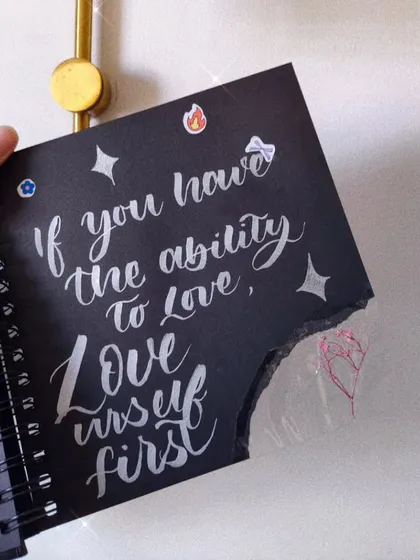 If you have
the ability
To Love,
Love
urself
first